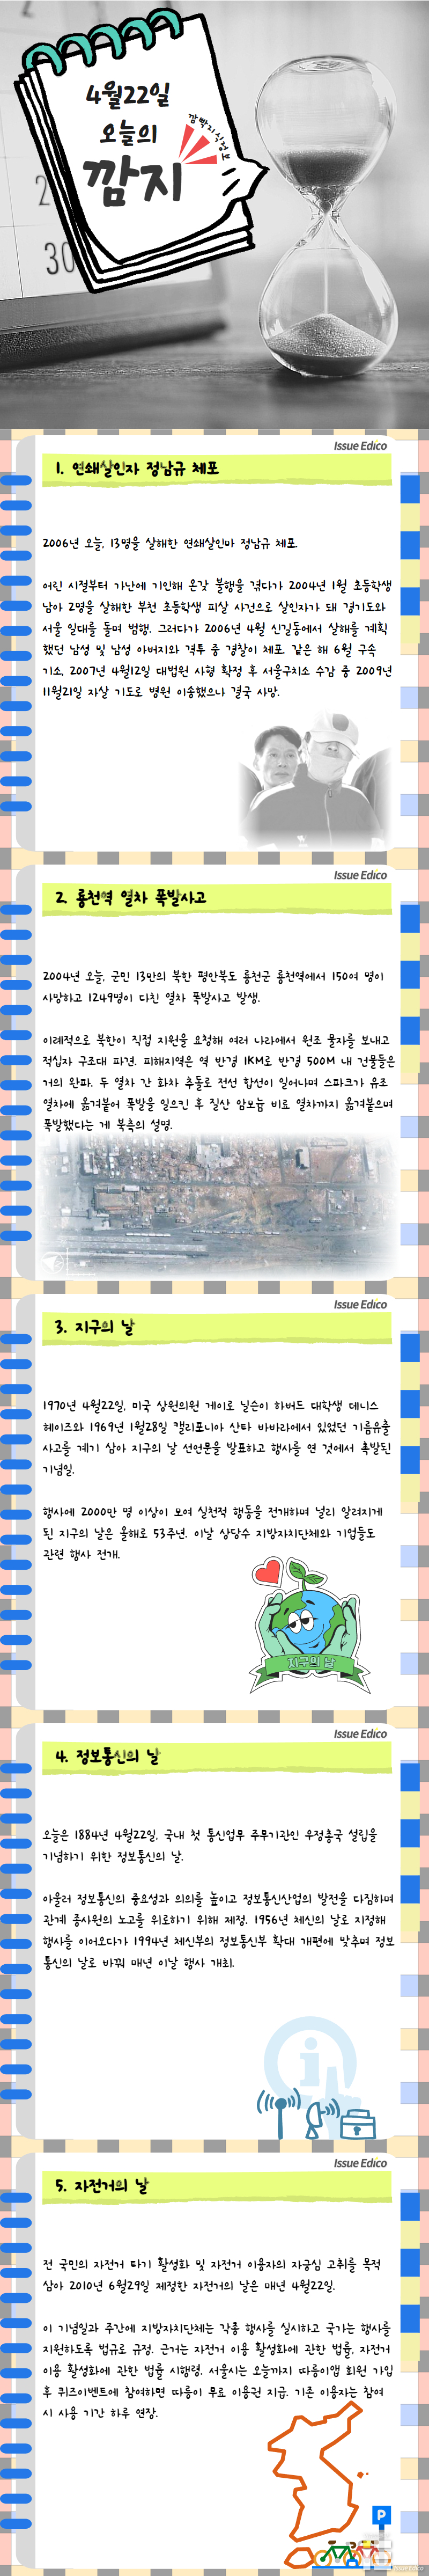 4월22일
오늘의
깜지
깜빡지식정보
30
Issue Edico
1. 연쇄살인자 정남규 체포
2006년 오늘, 13명을 살해한 연쇄살인마 정남규 체포.
어린 시절부터 가난에 기인해 온갖 불행을 겪다가 2004년 1월 초등학생
남아 2명을 살해한 부천 초등학생 피살 사건으로 살인자가 돼 경기도와
서울 일대를 돌며 범행. 그러다가 2006년 4월 신길동에서 살해를 계획
했던 남성 및 남성 아버지와 격투 중 경찰이 체포. 같은 해 6월 구속
기소, 2007년 4월12일 대법원 사형 확정 후 서울구치소 수감 중 2009년
11월21일 자살 기도로 병원 이송했으나 결국 사망.
Issue Edico
2. 룡천역 열차 폭발사고
2004년 오늘, 군민 13만의 북한 평안북도 룡천군 룡천역에서 150여 명이
사망하고 1249명이 다친 열차 폭발사고 발생.
이례적으로 북한이 직접 지원을 요청해 여러 나라에서 원조 물자를 보내고
적십자 구조대 파견. 피해지역은 역 반경 1KM로 반경 500M 내 건물들은
거의 완파. 두 열차 간 화차 추돌로 전선 합선이 일어나며 스파크가 유조
열차에 옮겨붙어 폭발을 일으킨 후 질산 암모늄 비료 열차까지 옮겨붙으며
폭발했다는 게 북측의 설명.
Issue Edico
3. 지구의 날
1970년 4월22일, 미국 상원의원 게이로 닐슨이 하버드 대학생 데니스
헤이즈와 1969년 1월28일 캘리포니아 산타 바바라에서 있었던 기름유출
사고를 계기 삼아 지구의 날 선언문을 발표하고 행사를 연 것에서 촉발된
기념일.
행사에 2000만 명 이상이 모여 실천적 행동을 전개하며 널리 알려지게
된 지구의 날은 올해로 53주년. 이날 상당수 지방자치단체와 기업들도
관련 행사 전개.
지구의 날
Issue Edico
4. 정보통신의 날
오늘은 1884년 4월22일, 국내 첫 통신업무 주무기관인 우정총국 설립을
기념하기 위한 정보통신의 날.
아울러 정보통신의 중요성과 의의를 높이고 정보통신산업의 발전을 다짐하며
관계 종사원의 노고를 위로하기 위해 제정. 1956년 체신의 날로 지정해
행사를 이어오다가 1994년 체신부의 정보통신부 확대 개편에 맞추며 정보
통신의 날로 바꿔 매년 이날 행사 개최.
Issue Edico
5. 자전거의 날
전 국민의 자전거 타기 활성화 및 자전거 이용자의 자긍심 고취를 목적
삼아 2010년 6월29일 제정한 자전거의 날은 매년 4월22일.
이 기념일과 주간에 지방자치단체는 각종 행사를 실시하고 국가는 행사를
지원하도록 법규로 규정. 근거는 자전거 이용 활성화에 관한 법률, 자전거
이용 활성화에 관한 법률 시행령. 서울시는 오늘까지 따릉이앱 회원 가입
후 퀴즈이벤트에 참여하면 따릉이 무료 이용권 지급. 기존 이용자는 참여
시 사용 기간 하루 연장.
P
Issue Edico